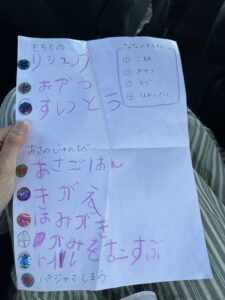 もちもの
リュック
おかつ
すいとう
① ごはん
② おやつ
あさのじゅんび
あさごはん
きがえ
はみがき
かみをむすぶ
トイレ
パジャマしまう